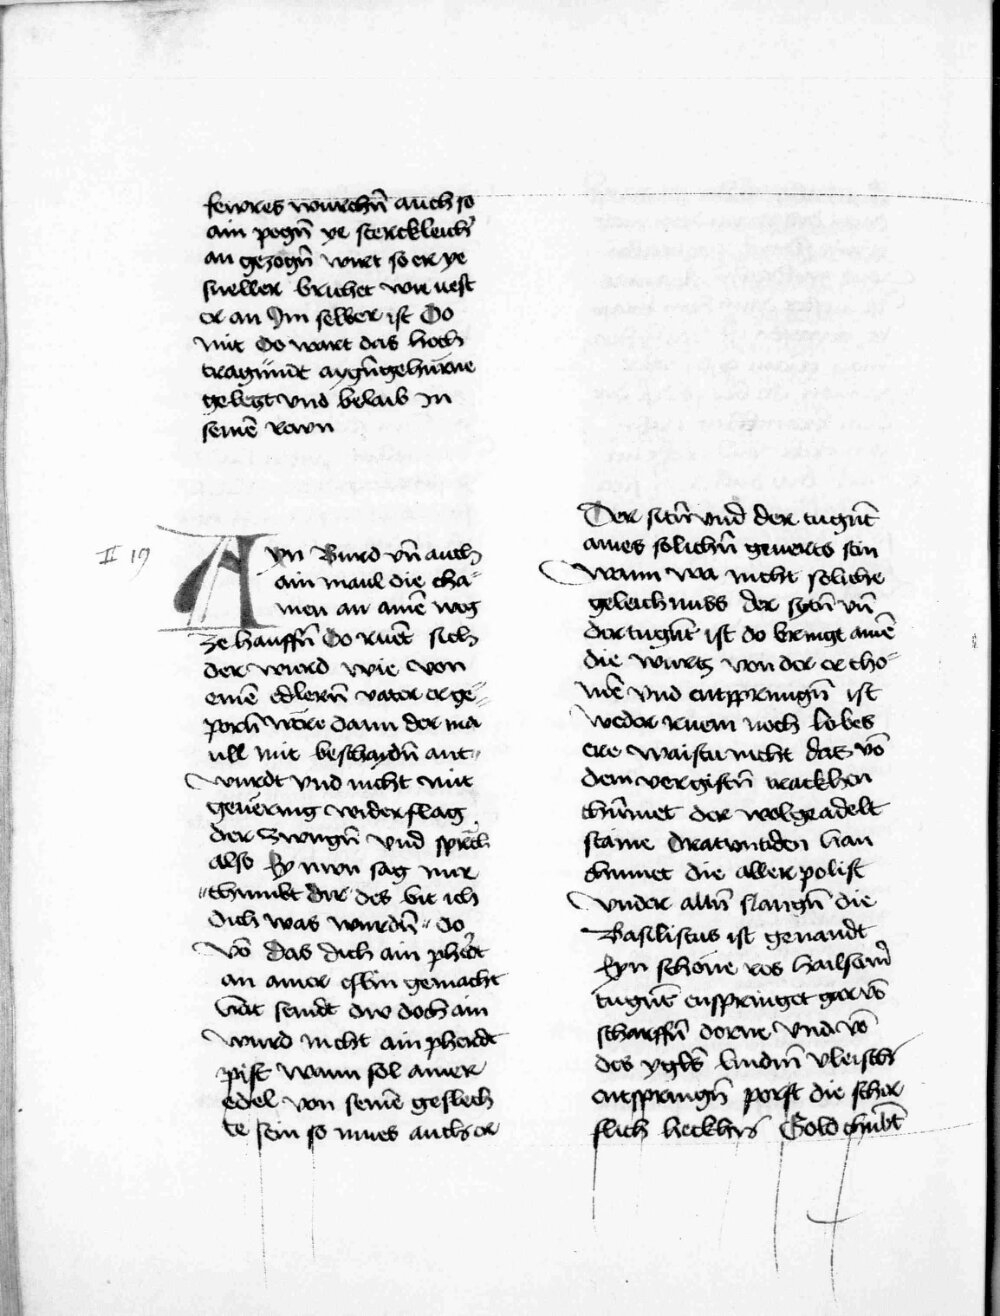 fewres wurchn̄ auch so
ain pogn̄ ye sterckleich
an gezogn̄ wirt so er ye
sneller brichet wie vest
er an Im selber ist Do
mit do wart das hoch
tragūndt aygn̄gehürne
gelegt vnd belaib in
seinē zorn
II 19
AYn Burd vn̄ auch
ain maul die cha=
men an ainē weg
ze hauffn̄ Do ruēt sich
der wurd wie er von
einē edlern̄ vater er ge=
porn̄ wēre dann der ma
ull mit beschaydn̄ ant=
wurdt vnd nicht mit
geuering widerslag
der zwngn̄ vnd sprach
also Ey nun sag mir
chumbt dir des bit ich
dich was wurdn̄ do
vō das dich ain phērt
an ainer eslin gemacht
hāt seindt dw doch ain
wurd nicht ain pherdt
pist wann sol ainer
edel von seinē geslech
te sein so mues auch er
Der sitn̄ vnd der tugnt̄
aines solichn̄ geuerts sein
wann wa nicht soliche
geleichnuss der sytn̄ vn̄
der tugnt̄ ist do bringt ainē
die wurtz von der er cho=
mē vnd entsprungn̄ ist
weder ruem noch lobes
ere waistu nicht das vō
dem vergiftn̄ trackhen
chūmet der wolgeadelt
staine dracontiden han
chumet die aller polist
vnder alln̄ slangn̄ die
Basiliscus ist genandt
Eyn schone ros hailsam̄
tugnt̄ enspringet gar vō
scharffn̄ dorne vnd vō
des ygls lindm̄ vleisch
entspringn̄ porst die schar
flich heckhn̄ Gold chūbt